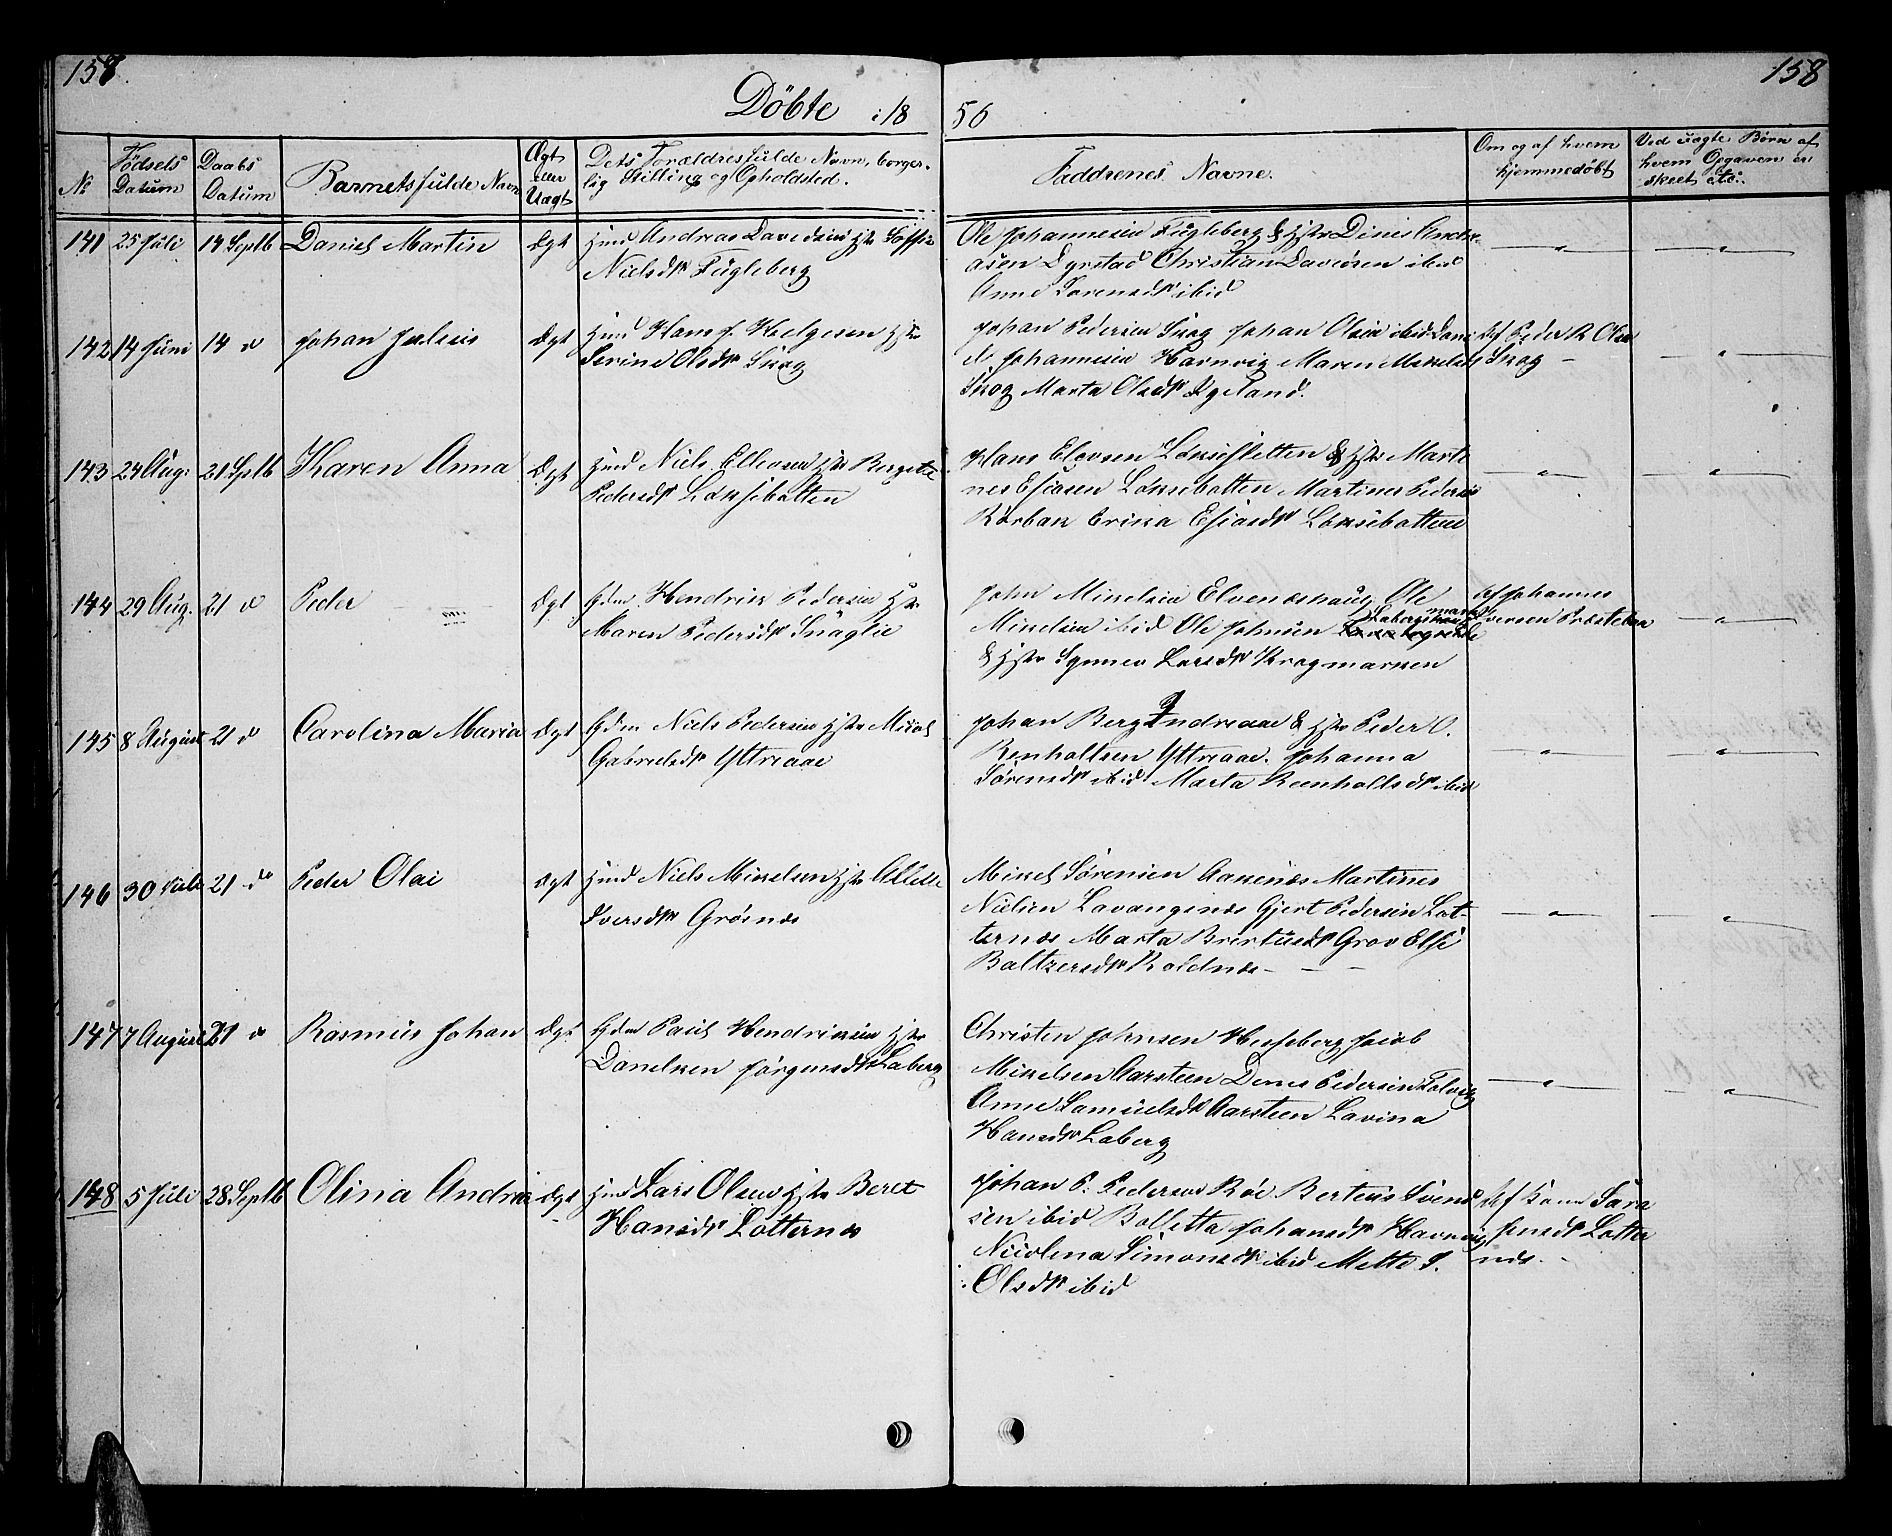 158.
158
Döbte i 18 56
№
Födsels Datum
Daabs Datum
Barnets fulde Navn
Ægt eller Uægt
Dets Forældres fulde Navn, borger-
lig Stilling og Opholdsted.
Faddrenes Navne.
Om og af hvem hjemmedöbt
Ved uægte Börn af hvem Opgaven er skeet etc.
141 25 Juli 14 Septb Daniel Martin Ægt Hmd Andreas Davidsen Hstr
Nielsdtr Fugleberg
Ole Johannesen Fugleberg & Hstr Dines Andre-
asen Dyrstad Christian Davidsen ibid
Anne Larensdtr ibid
142 14 Juni 14 d Johan Julius Ægt Hmd Hans J. Helgesen Hstr
Serine Olsdtr Skog
Johan Pedersen Skog Johan Olsen ibid Dani
el Johannesen Havnvig Maren Mikelsd
Skog Marta Olsdtr Dyeland.
Af Peder R Olsen
Skog -
143 24 Aug: 21 Septb Karen Anna Ægt Hmd Niels Ellevsen Hstr Bergete
Pedersdtr Lönsebotten
Hans Elevsen & Hstr Marti
nes Esiasen Lönsebotten Martines Pedersen
Esiasdtr Lönsebotten
144 29 Aug. 21 d Peder Ægt Gdm Hendrik Pedersen Hstr
Maren Pedersdtr
John Mikelsen Elvenæshaug Ole
Mikelsen ibid Ole Johnsen
& Hstr Synnev Larsdtr Krogmarken
Af Johannes
Iversen
145 8 August 21 d Carolina Maria Ægt Gdm Niels Pedersen Hstr
Gabrielsdtr Yttreaae
Johan Berg Indreaae & Hstr Peder O.
Renholtsen Yttreaae. Johanna
Sörensdtr ibid Marta Reenholtsdtr ibid
146 30 Juli 21 do Peder Olai Ægt Hmd Niels Mikelsen Hstr
Iversdtr Grösnæs
Mikel Sörensen Aanenæs Martines
Nielsen Lavangsnæs Gjert Pedersen Lot-
ternæs Marta Grov Else
Baltzersdtr Roldnæs - -
147 7 August 21 d Rasmus Johan Ægt Gdm Paul Hendriksen Hstr
Danelken Jörgensdtr Laberg
Christen Johnsen Hesseberg Jacob
Mikelsen Aarsteen Dines Pedersen
Anne Samuelsdtr Aarsteen Lavina
Hansdtr Laberg
148 5 Juli 28 Septb Olina Andrea Ægt Hmd Lars Olsen Hstr Beret
Hansdtr Lotternæs
Johan P. Pedersen Röe Berteus Svend
sen ibid Bolletta Johansdtr Havnvig
Nicolina Simonsdtr ibid Mette J.
Olsdtr ibid
Af Kone Sara
Jensdtr Lotter
næs. -